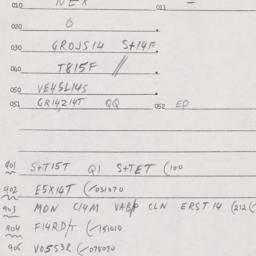 010 NEX 011 -
020 0
030 GROJS14 S+14F
040 T815F //
050 VE4SL14S
051 GR14Z14T QQ 052 EP
901 S+T15T Q1 S+TET (100
902 E5X14T (-031070
903 MDN C14M CLN ERST14 (212(
904 F14RD/T (-151010
905 V05S3R (-078030